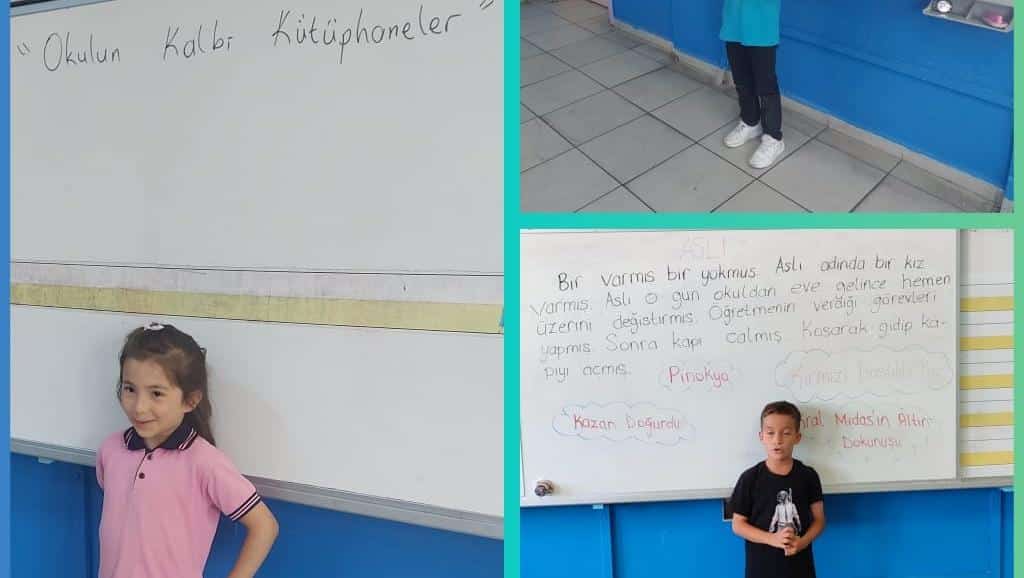 "Okulun Kalbi Kütüphaneler"
ASLI
Bir varmış bir yokmuş. Aslı adında bir kız
varmış. Aslı o gün okuldan eve gelince hemen
üzerini değiştirmiş. Öğretmenin verdiği görevleri
yapmış. Sonra kapı çalmış. Koşarak gidip ka-
pıyı açmış.
Pinokyo
Kırmızı Başlıklı Kız
Kazan Doğurdu
Midas'ın Altın
Dokunuşu